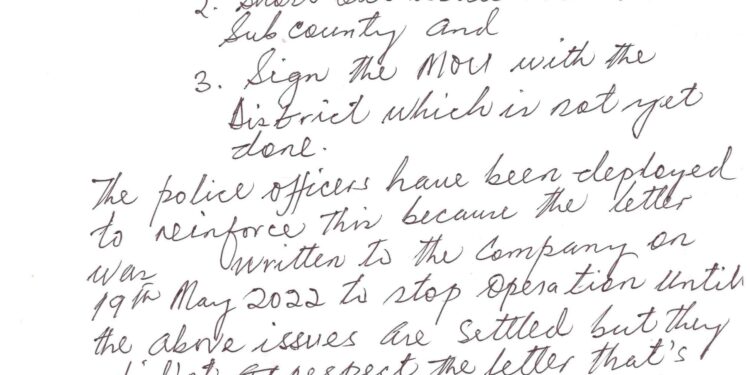 2.
Subcounty and
3. Sign the MOU with the
District which is not yet
done.
The police officers have been deployed
to reinforce this because the letter
was written to the company on
19th May 2022 to stop operation until
the above issues are settled but they
respect the letter that's